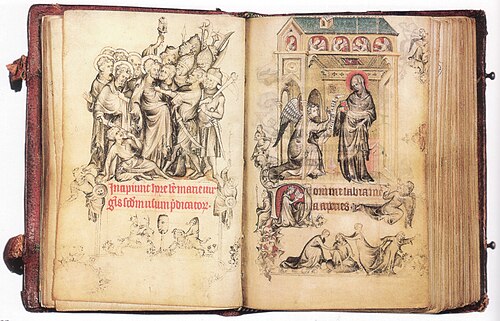 Incipiunt hore bē marie uir
gīs scdm usum p̄dicator
Domine labia me
a aperies